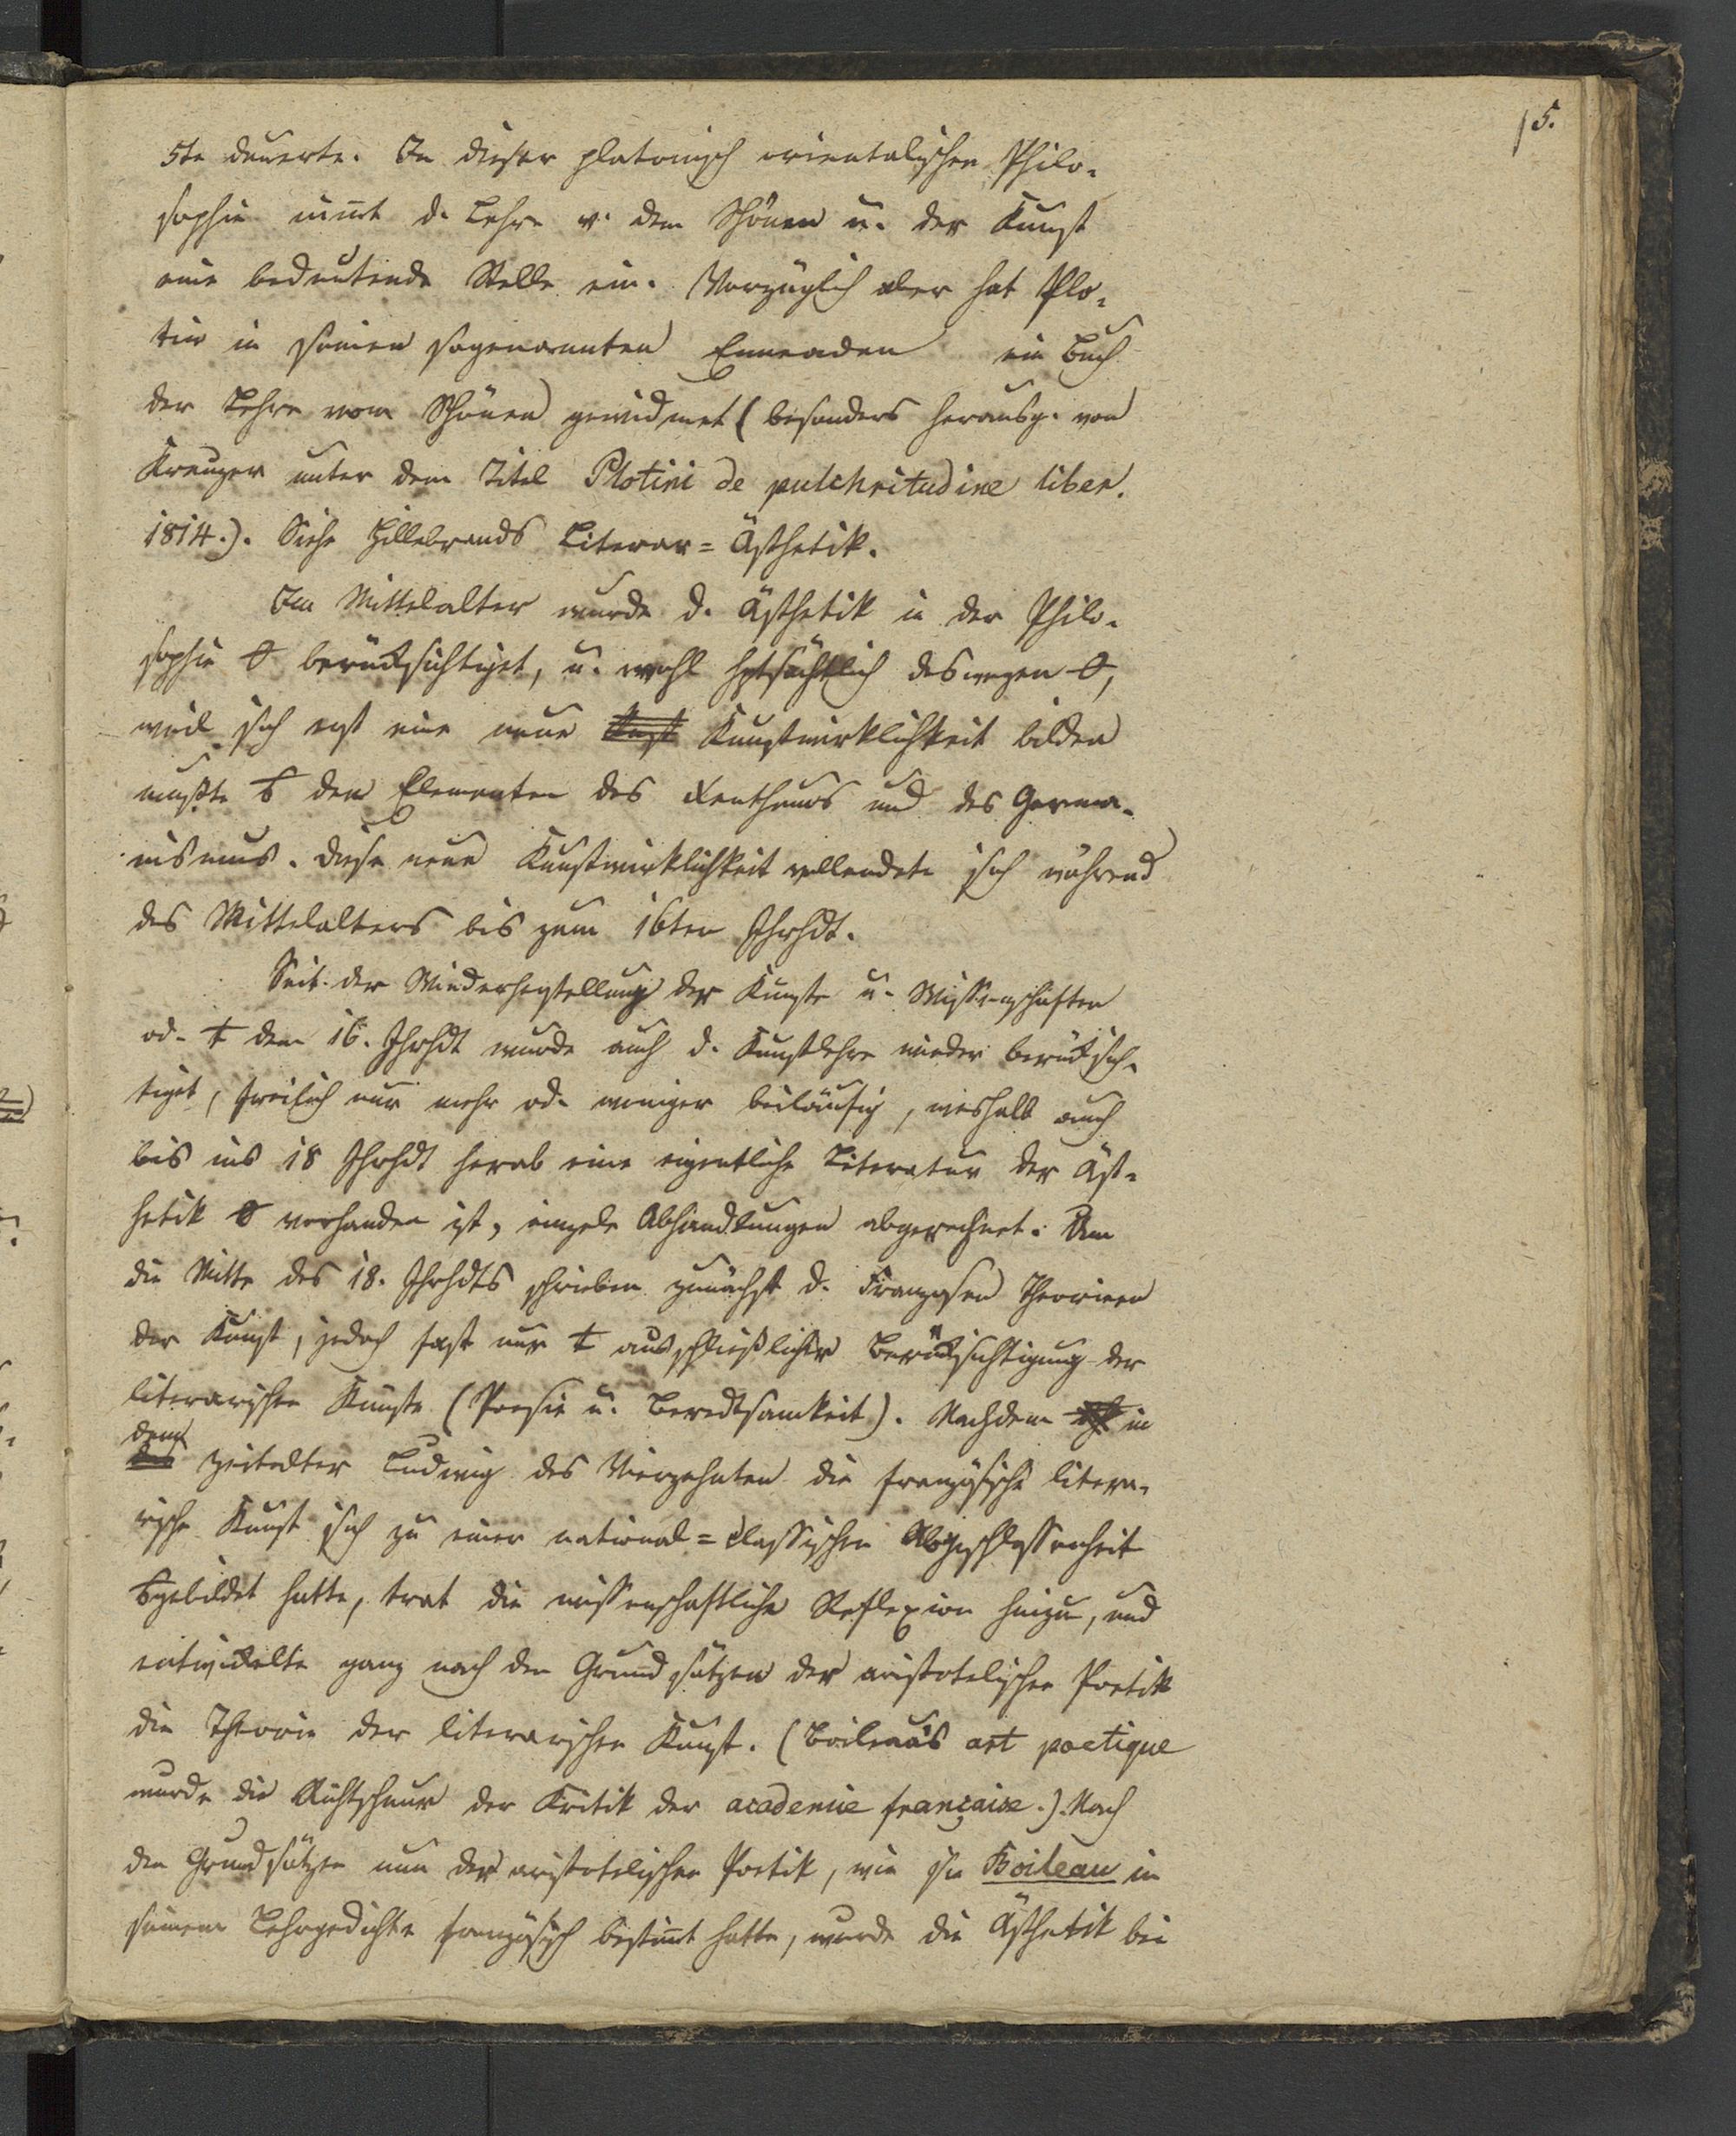 5.
5te dauerte. In dieser platonisch orientalischen Philo-
sophie nim̄t d. Lehre v. dem Schönen u. der Kunst
eine bedeutende Stelle ein. Vorzüglich aber hat Plo-
tin in seinen sogenannten Enneaden ein Buch
der Lehre vom Schönen gewidmet (besonders herausg. von
Kreuzer unter dem Titel Plotini de pulchritudine liber.
1814.). Siehe Hillebrands Literar=Ästhetik.
Im Mittelalter wurde d. Ästhetik in der Philo-
sophie berücksichtiget, u. wohl hptsächlich deswegen
weil sich erst eine neue Kunst Kunstwirklichkeit bilden
mußte den Elementen des Xenthums und des Germa-
nismus. Diese neue Kunstwirklichkeit vollendete sich während
des Mittelalters bis zum 16ten Jhrhdt.
Seit der Wiederherstellung der Künste u. Wissenschaften
od. dem 16. Jhrhdt wurde auch d. Kunstlehre wieder berücksich-
tiget, freilich nur mehr od. weniger beiläufig, weshalb auch
bis ins 18 Jhrhdt herab eine eigentliche Literatur der Äst-
hetik vorhanden ist, einzele Abhandlungen abgerechnet. Um
die Mitte des 18. Jhrhdts schrieben zunächst d. Franzosen Theorieen
der Kunst, jedoch fast nur ausschließlicher Berücksichtigung der
literarischen Künste (Poesie u. Beredtsamkeit). Nachdem in
dem Zeitalter Ludwig des Vierzehnten die französische litera-
rische Kunst sich zu einer national=classischen Abgeschlossenheit
gebildet hatte, trat die wissenschaftliche Reflexion hinzu, und
entwickelte ganz nach den Grundsätzen der aristotelischen Poetik
die Theorie der literarischen Kunst. (Boileau's art poetique
wurde die Richtschnur der Kritik der academie française.). Nach
den Grundsätzen nun der aristotelischen Poetik, wie sie Boileau in
seinem Lehrgedichte französisch bestim̄t hatte, wurde die Ästhetik bei